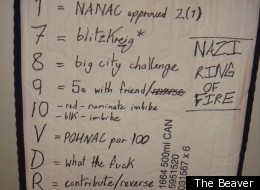 1 = NANAC approved 2(1)
7 = blitzkreig*
8 = big city challenge
9 = 5a with friend/reverse
10 -red- nominate imbibe
-blk- imbibe
V = POHNAC par 100
D = what the fuck
R = contribute/reverse
NAZI
RING
OF
FIRE
1664 500ml CAN
5951520
031567 x 6
The Beaver